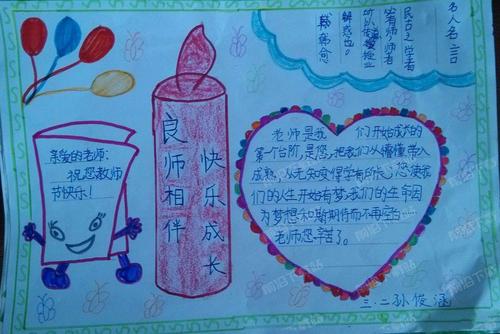 名人名言
古之学者
必有师,师者
所以传道授业
解惑也。
韩愈
亲爱的老师:
祝您教师
节快乐!
良师相伴
快乐成长
老师是我们开始成长的
第一个台阶,是您,把我们从懵懂带入
成熟,从无知变得学有所长;您使我
们的人生开始有梦,我们的生命因
为梦想和期待而不再空白……
老师您辛苦了。
三.二孙俊涵